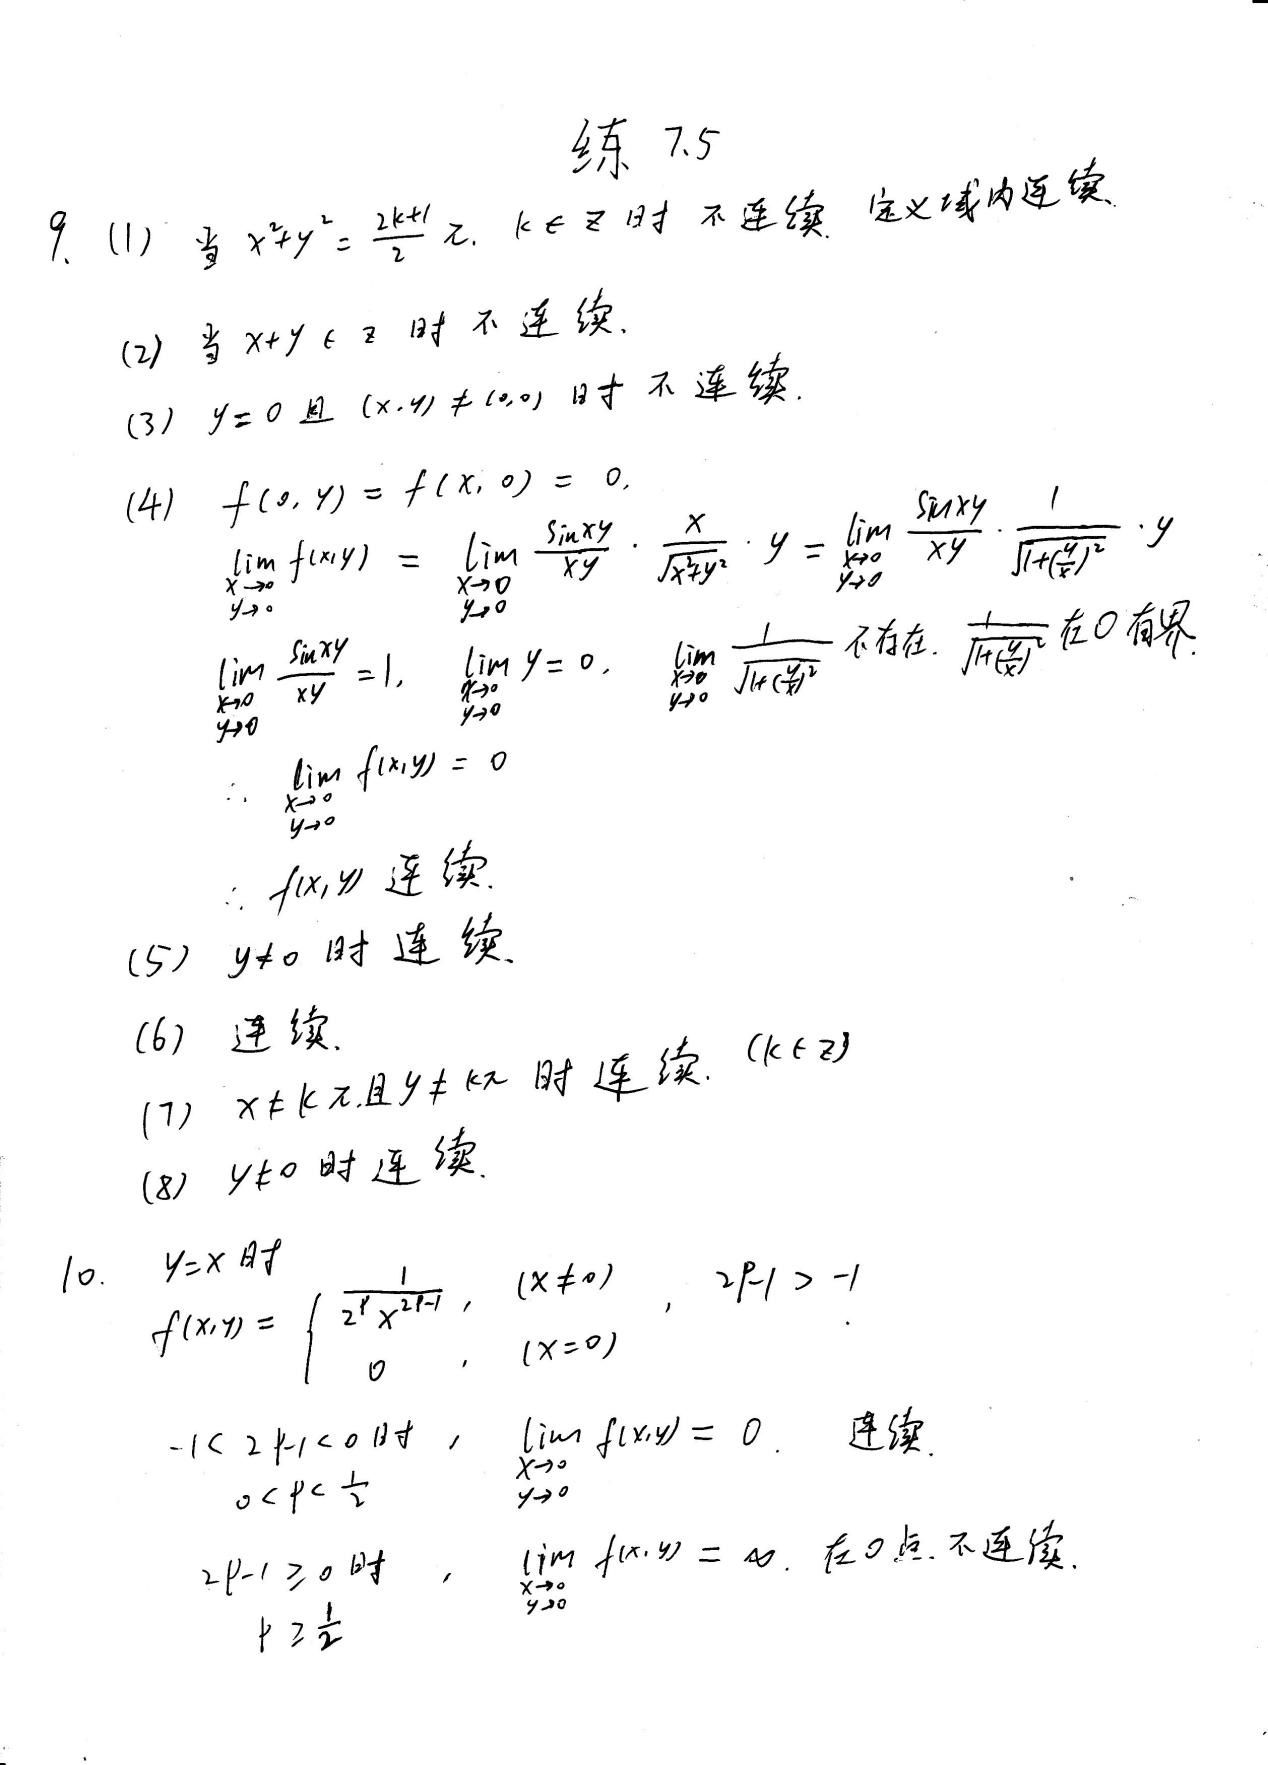 练 7.5
9. (1) 当 x²+y² = (2k+1)/2 π. k∈Z 时 不连续. 定义域内连续.
(2) 当 x+y ∈ Z 时 不连续.
(3) y=0 且 (x.y) ≠ (0,0) 时 不连续.
(4) f(0,y) = f(x,0) = 0.
lim_{x→0, y→0} f(x,y) = lim_{x→0, y→0} sinxy/xy · x/√(x²+y²) · y = lim_{x→0, y→0} sinxy/xy · 1/√(1+(y/x)²) · y
lim_{x→0, y→0} sinxy/xy = 1, lim_{x→0, y→0} y = 0, lim_{x→0, y→0} 1/√(1+(y/x)²) 不存在. 1/√(1+(y/x)²) 在0有界.
∴ lim_{x→0, y→0} f(x,y) = 0
∴ f(x,y) 连续.
(5) y≠0 时 连续.
(6) 连续.
(7) x≠kπ.且y≠kπ 时连续. (k∈Z)
(8) y≠0 时连续.
10. y=x 时
f(x,y) = { 1/(2^p x^(2p-1)), (x≠0) , 2p-1 > -1.
0 , (x=0)
-1<2p-1<0时, lim_{x→0, y→0} f(x,y) = 0. 连续.
0<p<1/2
2p-1≥0时, lim_{x→0, y→0} f(x,y) = ∞. 在0点.不连续.
p≥1/2